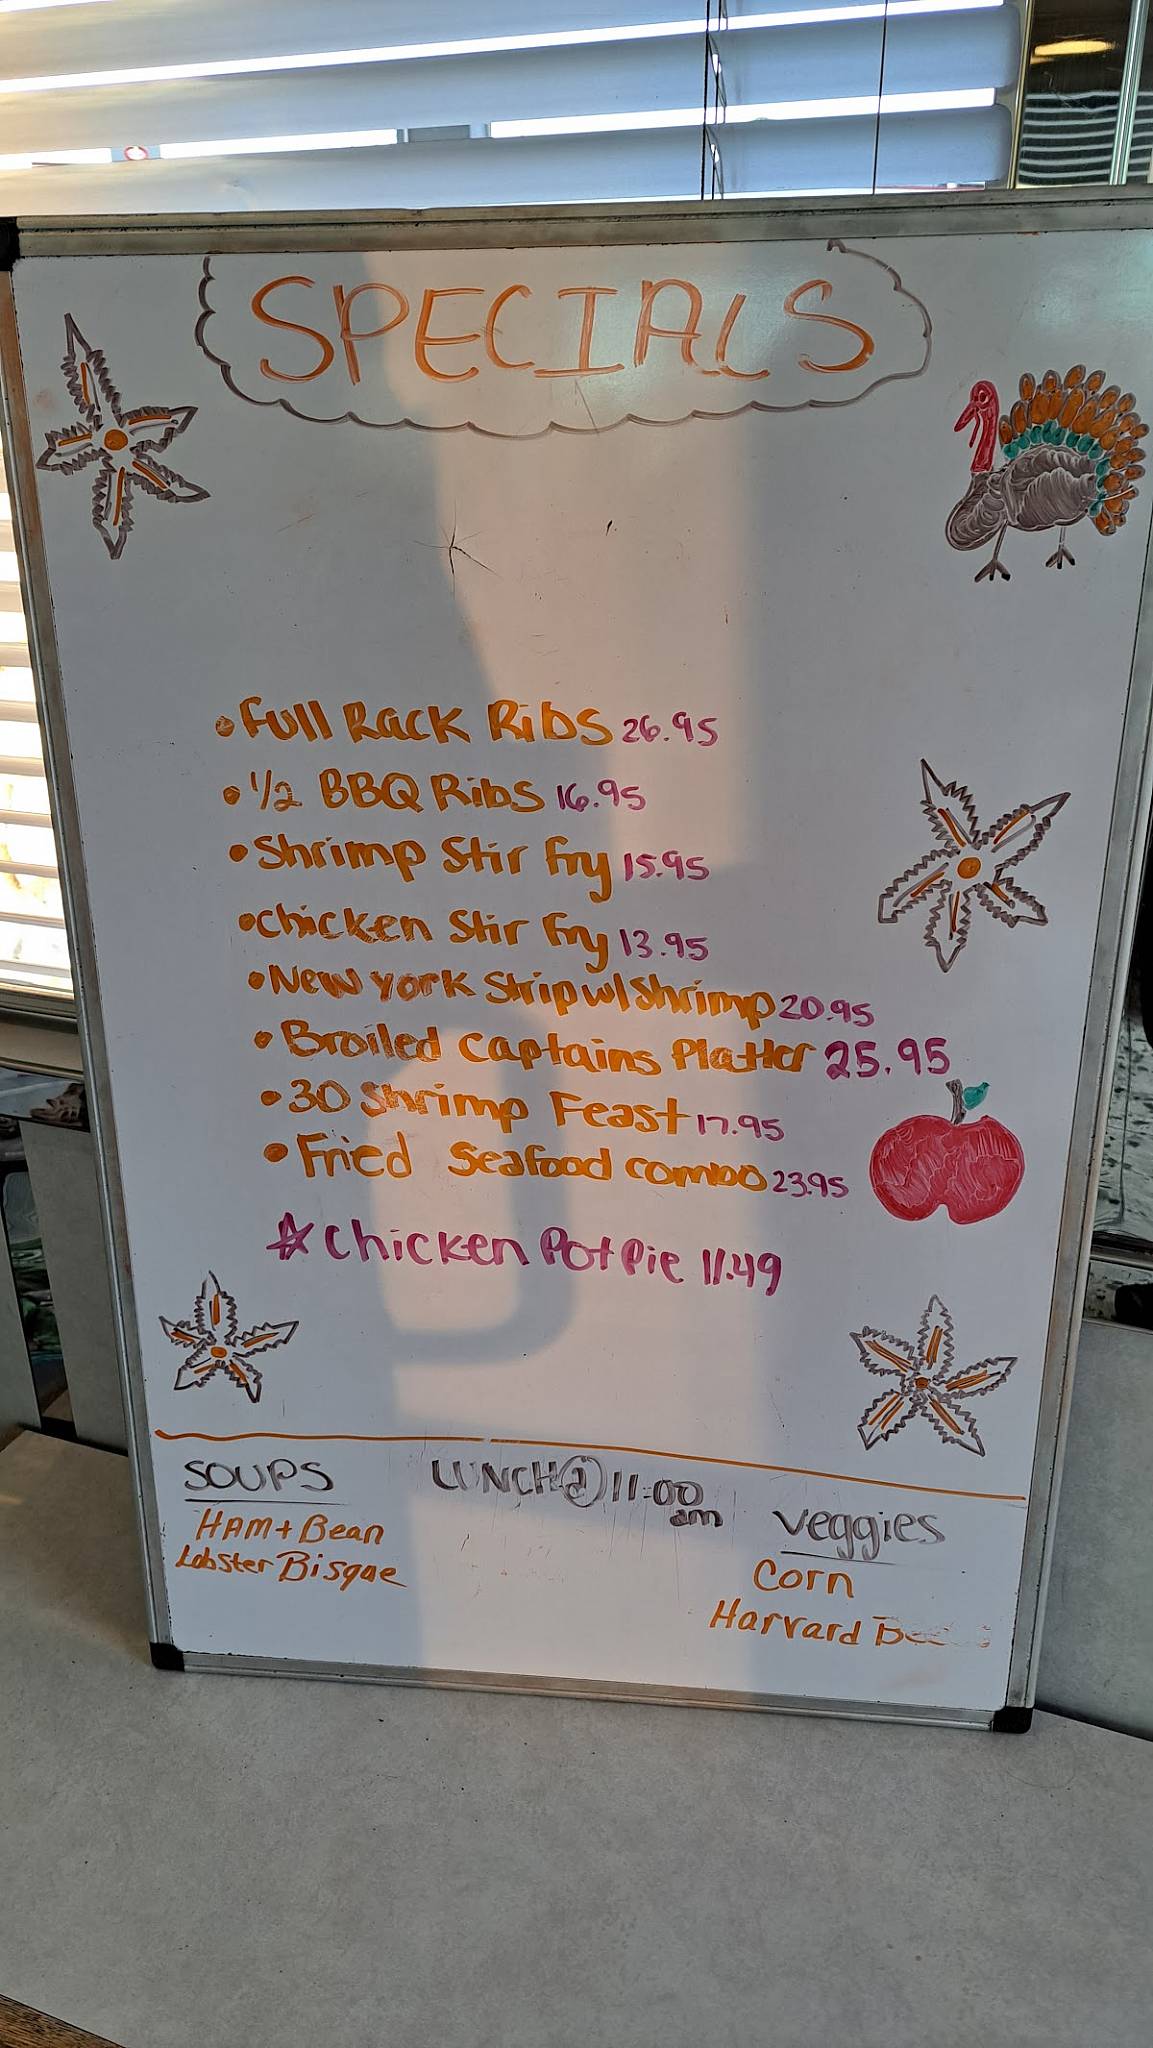 SPECIALS
• Full Rack Ribs 26.95
• 1/2 BBQ Ribs 16.95
• Shrimp Stir Fry 15.95
• Chicken Stir Fry 13.95
• New York Strip w/ Shrimp 20.95
• Broiled Captains Platter 25.95
• 30 Shrimp Feast 17.95
• Fried Seafood Combo 23.95
☆ Chicken Pot Pie 11.49
SOUPS
HAM + Bean
Lobster Bisque
LUNCH @ 11:00 am
Veggies
Corn
Harvard